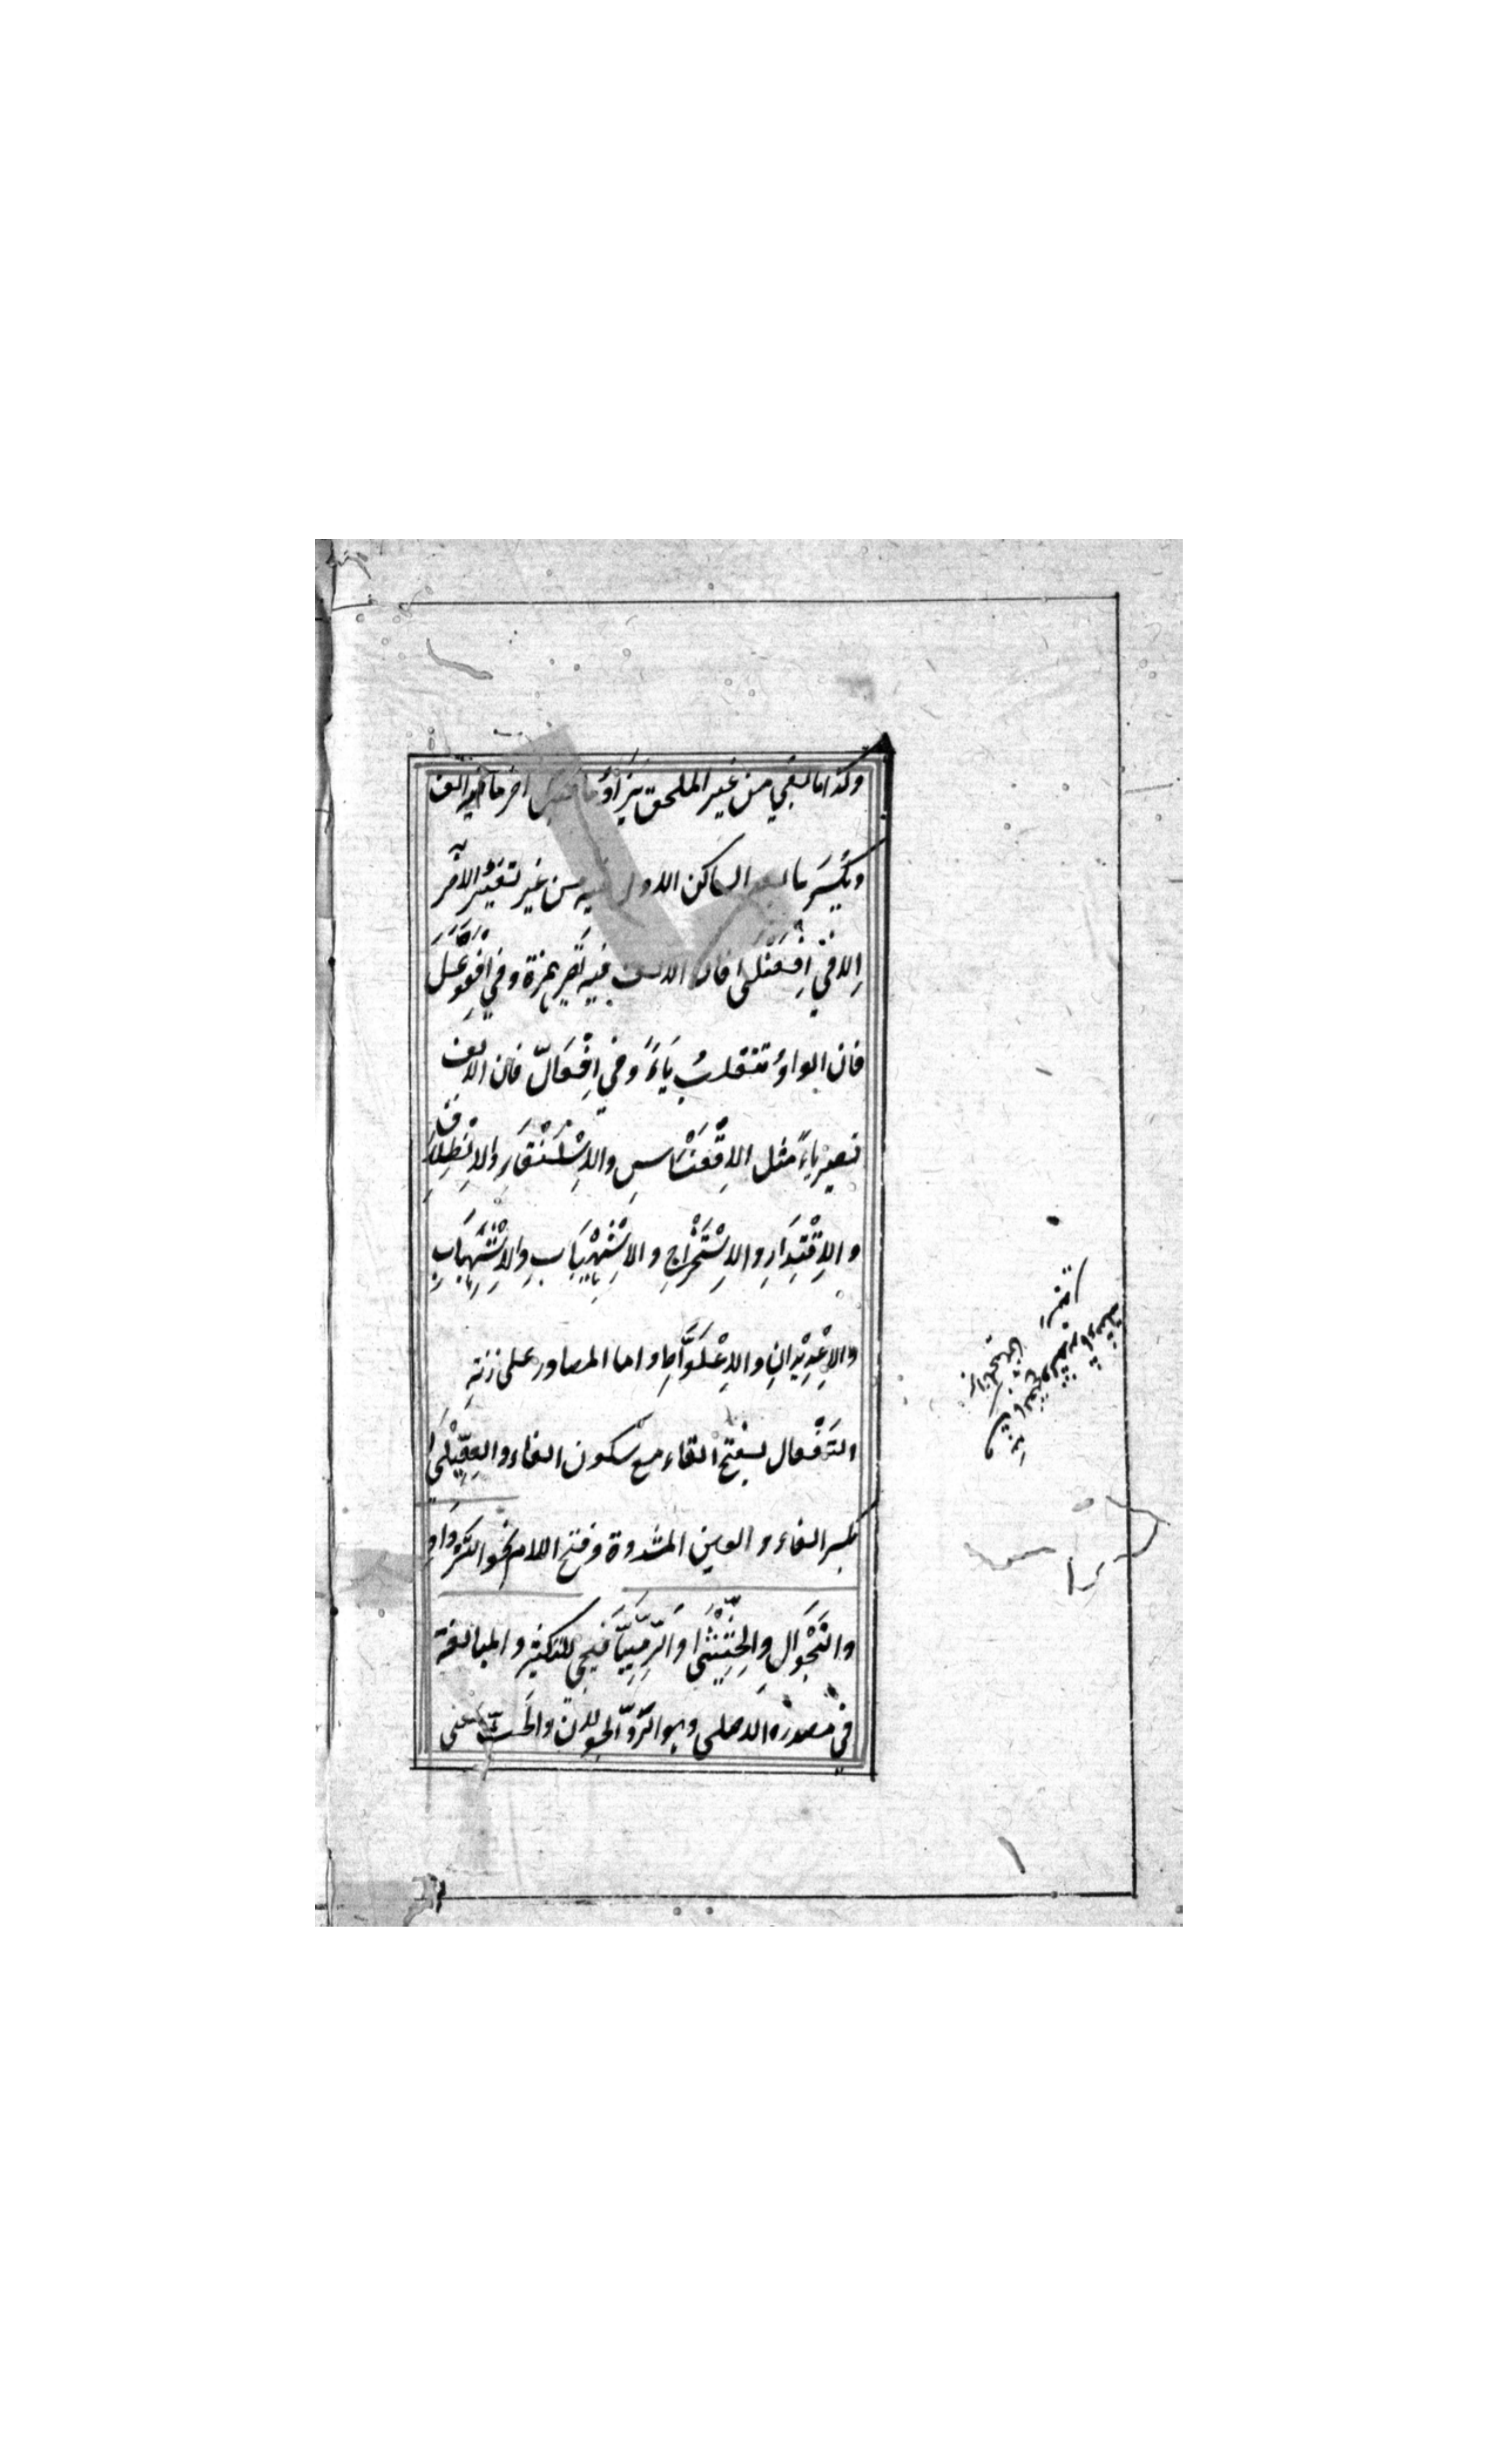 وكذا ما بقي من غير الملحق يزاد ما قبل آخر ما فيه الف
ويُكْسَر ما بعد الساكن الاول فيه من غير تغيّر الآخر
اِلا في اِفْعَنْلَى فان الالف فيه تصير همزة وفي اِفْعَوَّعَلَ
فان الواوُ تنقلبُ يَاءً وفي اِفْعَالّ فان الالف
تصير ياءً مثل الاِقْعِنْسَاسِ والاِسْلِنْقَاءِ والاِنْطِلَاقِ
والاِقْتِدَارِ والاِسْتِخْرَاجِ والاِشْهِيْبَابِ والاِشْهِبَابِ
والاِغْدِيْدَانِ والاِعْلِوَّاطِ واما المصادر على زنةِ
التَفْعال بفتح التاء مع سكون الفاء والفِعِّيْلَى
بكسر الفاء والعين المشددة وفتح اللام نحو التَّرْدَادِ
والتَجْوَالِ والحِثِّيْثَى والرِّمِّيَّا فيجئ للتكثير والمبالغة
في مصدره الاصلي وهو الرَّدّ والجولان والحَثّ يعني